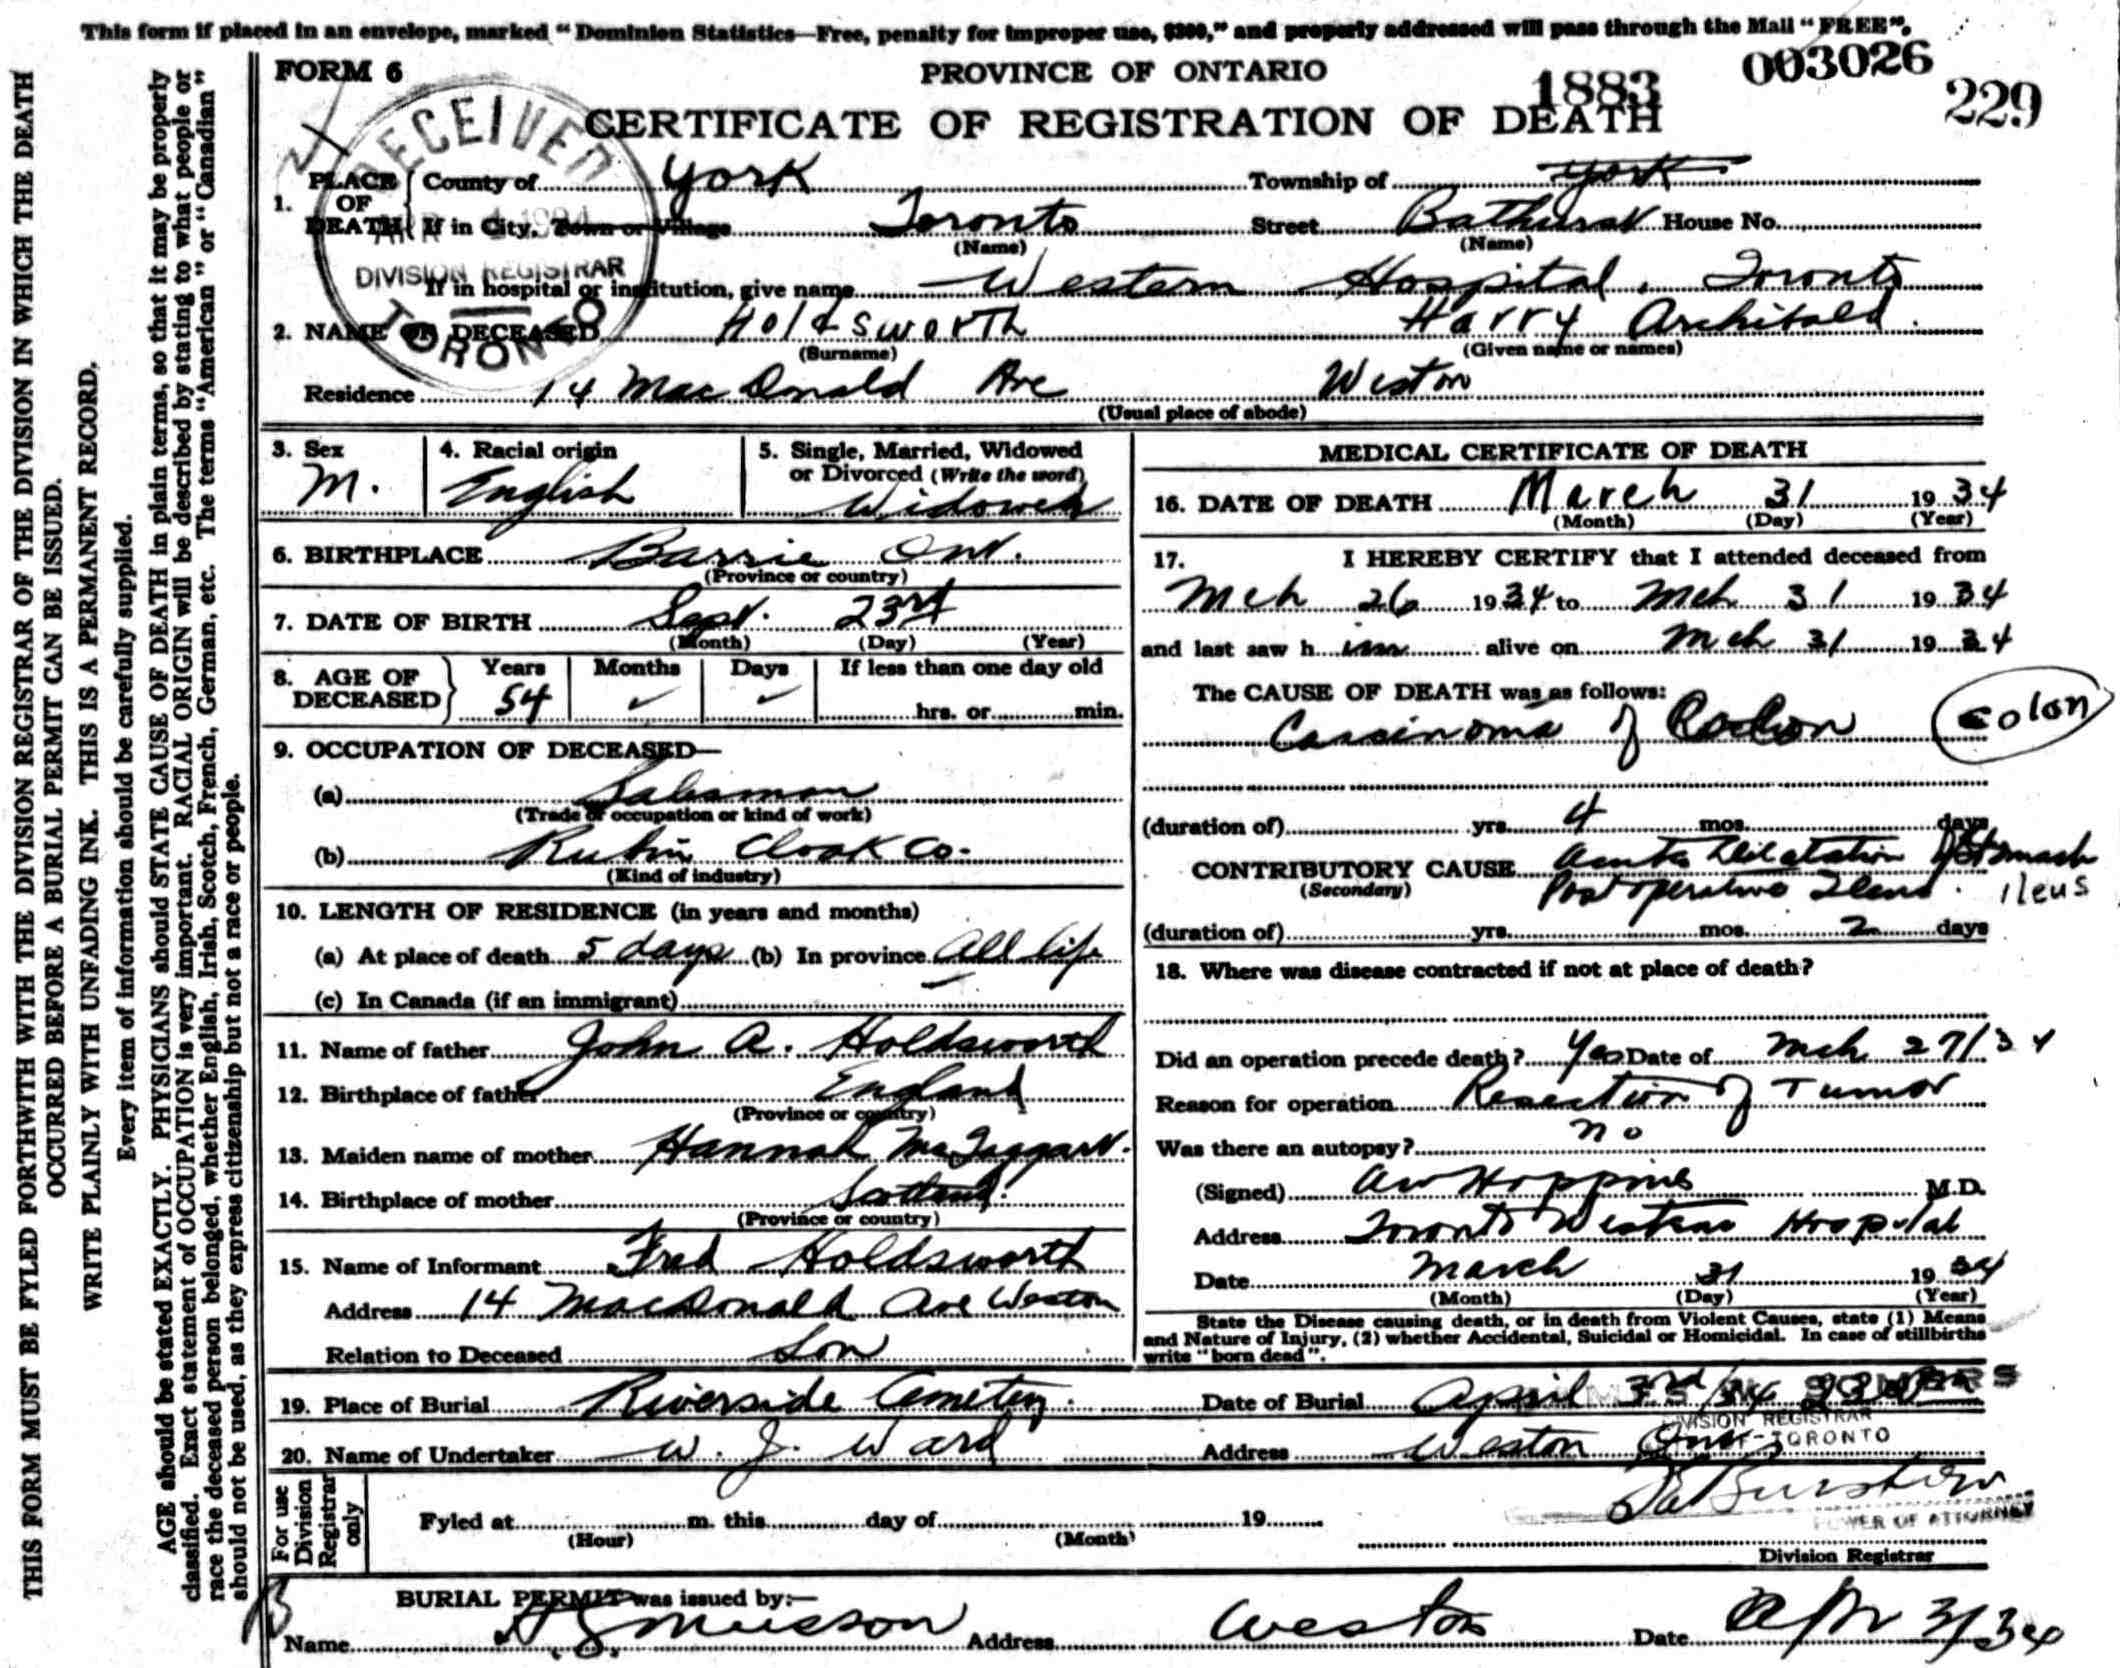 This form if placed in an envelope, marked "Dominion Statistics—Free, penalty for improper use, $300," and properly addressed will pass through the Mail "FREE".
THIS FORM MUST BE FYLED FORTHWITH WITH THE DIVISION REGISTRAR OF THE DIVISION IN WHICH THE DEATH
OCCURRED BEFORE A BURIAL PERMIT CAN BE ISSUED.
WRITE PLAINLY WITH UNFADING INK. THIS IS A PERMANENT RECORD.
Every item of information should be carefully supplied.
AGE should be stated EXACTLY. PHYSICIANS should STATE CAUSE OF DEATH in plain terms, so that it may be properly
classified. Exact statement of OCCUPATION is very important. RACIAL ORIGIN will be described by stating to what people or
race the deceased person belonged, whether English, Irish, Scotch, French, German, etc. The terms "American" or "Canadian"
should not be used, as they express citizenship but not a race or people.
FORM 6
PROVINCE OF ONTARIO
1883
003026
229
CERTIFICATE OF REGISTRATION OF DEATH
RECEIVED
DIVISION REGISTRAR
TORONTO
1. PLACE OF DEATH County of York Township of York
If in City, Town or Village Toronto Street Bathurst House No.
(Name) (Name)
If in hospital or institution, give name Western Hospital, Toronto
2. NAME OF DECEASED Holdsworth Harry Archibald.
(Surname) (Given name or names)
Residence 14 MacDonald Ave Weston
(Usual place of abode)
3. Sex M.
4. Racial origin English
5. Single, Married, Widowed or Divorced (Write the word) Widower
6. BIRTHPLACE Barrie Ont.
(Province or country)
7. DATE OF BIRTH Sept. 23rd
(Month) (Day) (Year)
8. AGE OF DECEASED Years 54 Months ✓ Days ✓ If less than one day old
hrs. or min.
9. OCCUPATION OF DECEASED—
(a) Salesman
(Trade or occupation or kind of work)
(b) Rubin Cloak Co.
(Kind of industry)
10. LENGTH OF RESIDENCE (in years and months)
(a) At place of death 5 days (b) In province All life
(c) In Canada (if an immigrant)
11. Name of father John A. Holdsworth
12. Birthplace of father England
(Province or country)
13. Maiden name of mother Hannah McTaggart.
14. Birthplace of mother Scotland
(Province or country)
15. Name of Informant Fred Holdsworth
Address 14 MacDonald Ave Weston
Relation to Deceased Son
MEDICAL CERTIFICATE OF DEATH
16. DATE OF DEATH March 31 1934
(Month) (Day) (Year)
17. I HEREBY CERTIFY that I attended deceased from
Mch 26 1934 to Mch 31 1934
and last saw him alive on Mch 31 1934
The CAUSE OF DEATH was as follows:
Carcinoma of Colon
colon
(duration of) yrs. 4 mos. days
CONTRIBUTORY CAUSE Acute Dilatation of Stomach
(Secondary) Post operative Ileus. ileus
(duration of) yrs. mos. 2 days
18. Where was disease contracted if not at place of death?
Did an operation precede death? Yes Date of Mch 27/34
Reason for operation Resection of Tumor
Was there an autopsy? no
(Signed) AW Hoppins M.D.
Address Toronto Western Hospital
Date March 31 1934
(Month) (Day) (Year)
State the Disease causing death, or in death from Violent Causes, state (1) Means
and Nature of Injury, (2) whether Accidental, Suicidal or Homicidal. In case of stillbirths
write "born dead".
19. Place of Burial Riverside Cemetery. Date of Burial April 3rd/34
20. Name of Undertaker W. J. Ward Address Weston Ont.
DIVISION REGISTRAR
TORONTO
For use Division Registrar only
Fyled at m. this day of 19
(Hour) (Month)
POWER OF ATTORNEY
Division Registrar
BURIAL PERMIT was issued by:—
Name Musson Address Weston Date Apr 3/34